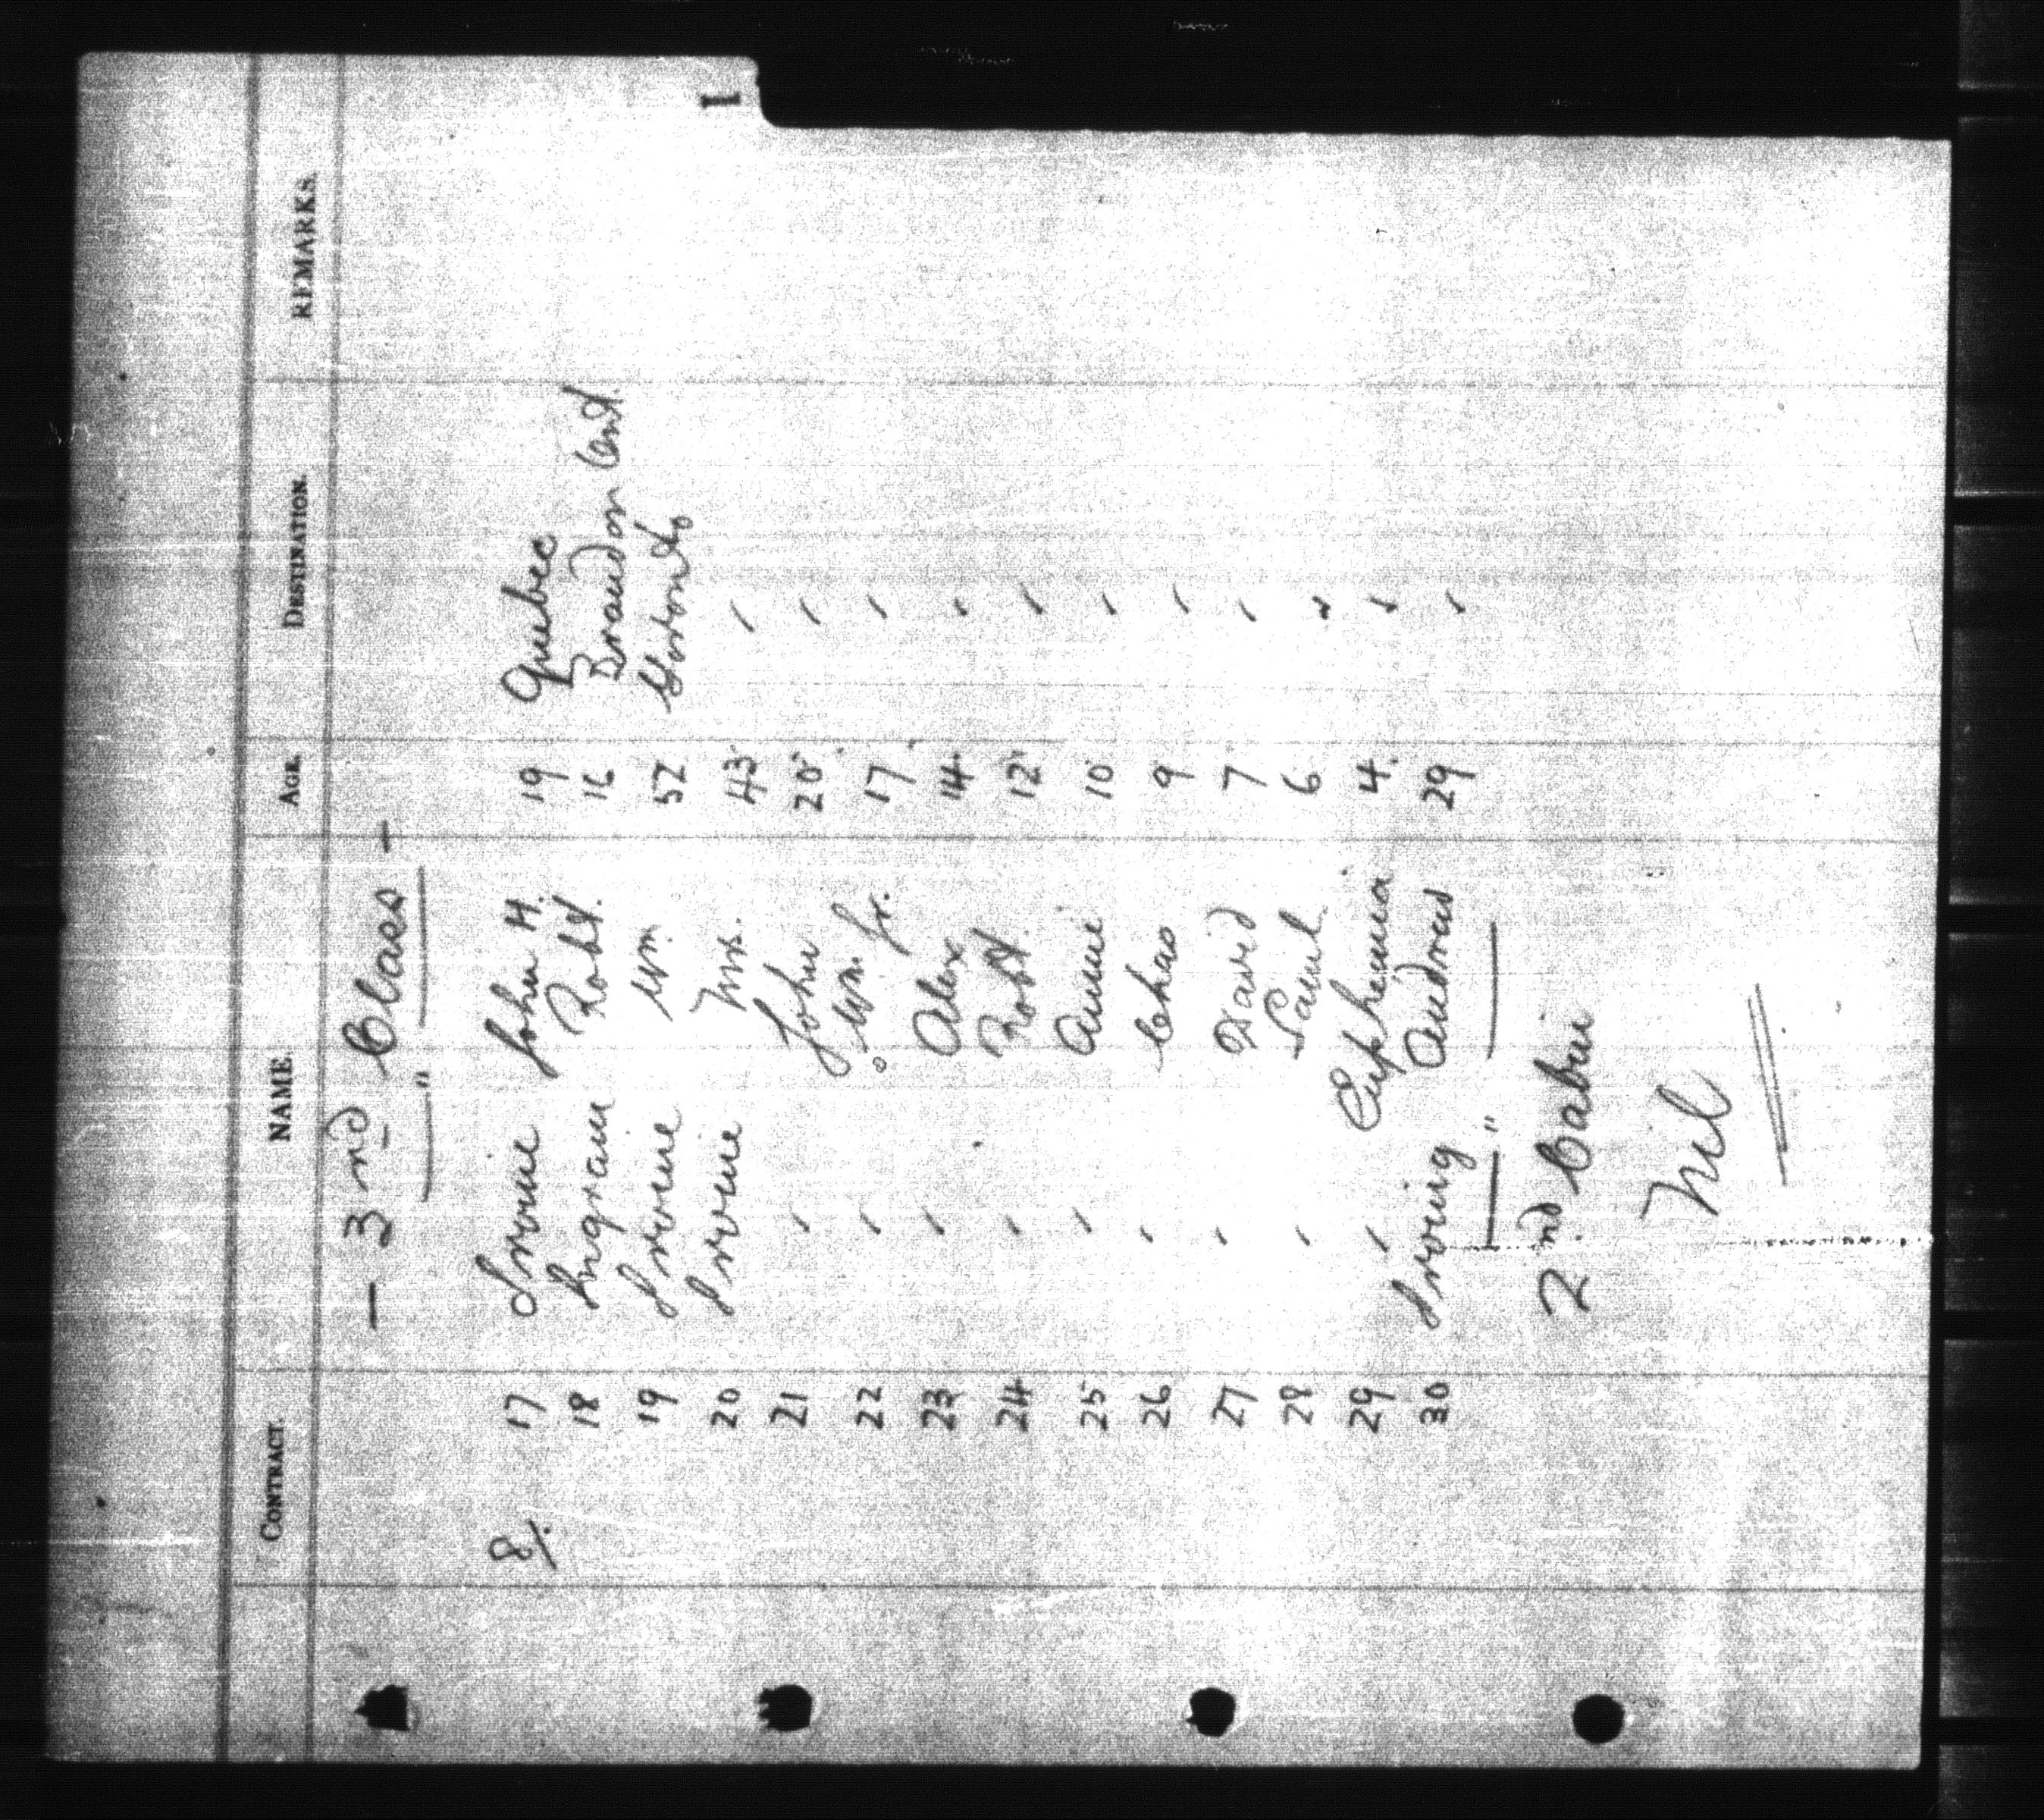 I
CONTRACT. NAME. AGE. DESTINATION. REMARKS.
— 3rd Class —
"
8/. 17 Irvine John H. 19 Quebec
18 Ingram Robt. 16 Brandon Cent.
19 Irvine Wm. 52 Toronto
20 Irvine Mrs. 43 ✓
21 ✓ John 20 ✓
22 ✓ Wm. Jr. 17 ✓
23 ✓ Alex 14 ✓
24 ✓ Robt. 12 ✓
25 ✓ Annie 10 ✓
26 ✓ Chas 9 ✓
27 ✓ David 7 ✓
28 ✓ Saml. 6 ✓
29 ✓ Euphemia 4 ✓
30 Irving Andrew 29 ✓
"
2nd Cabin
Nil